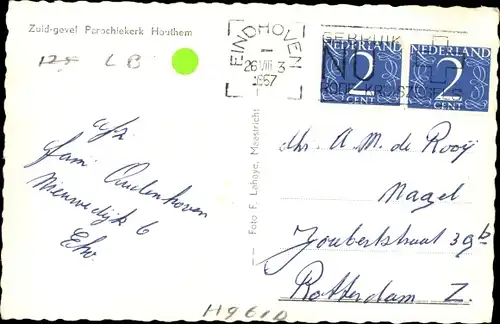 Zuid-gevel Parochiekerk Houthem
125 LB
EINDHOVEN
26 VIII 3
1957
GEBRUIK
NU
NEDERLAND
2
CENT
NEDERLAND
2
CENT
afz.
fam. Oudenhoven
Nieuwedijk 6
Ehv.
Foto F. Lahaye, Maastricht
dhr. A. M. de Rooij
Nagel
Joubertstraat 39b
Rotterdam Z.
H9610